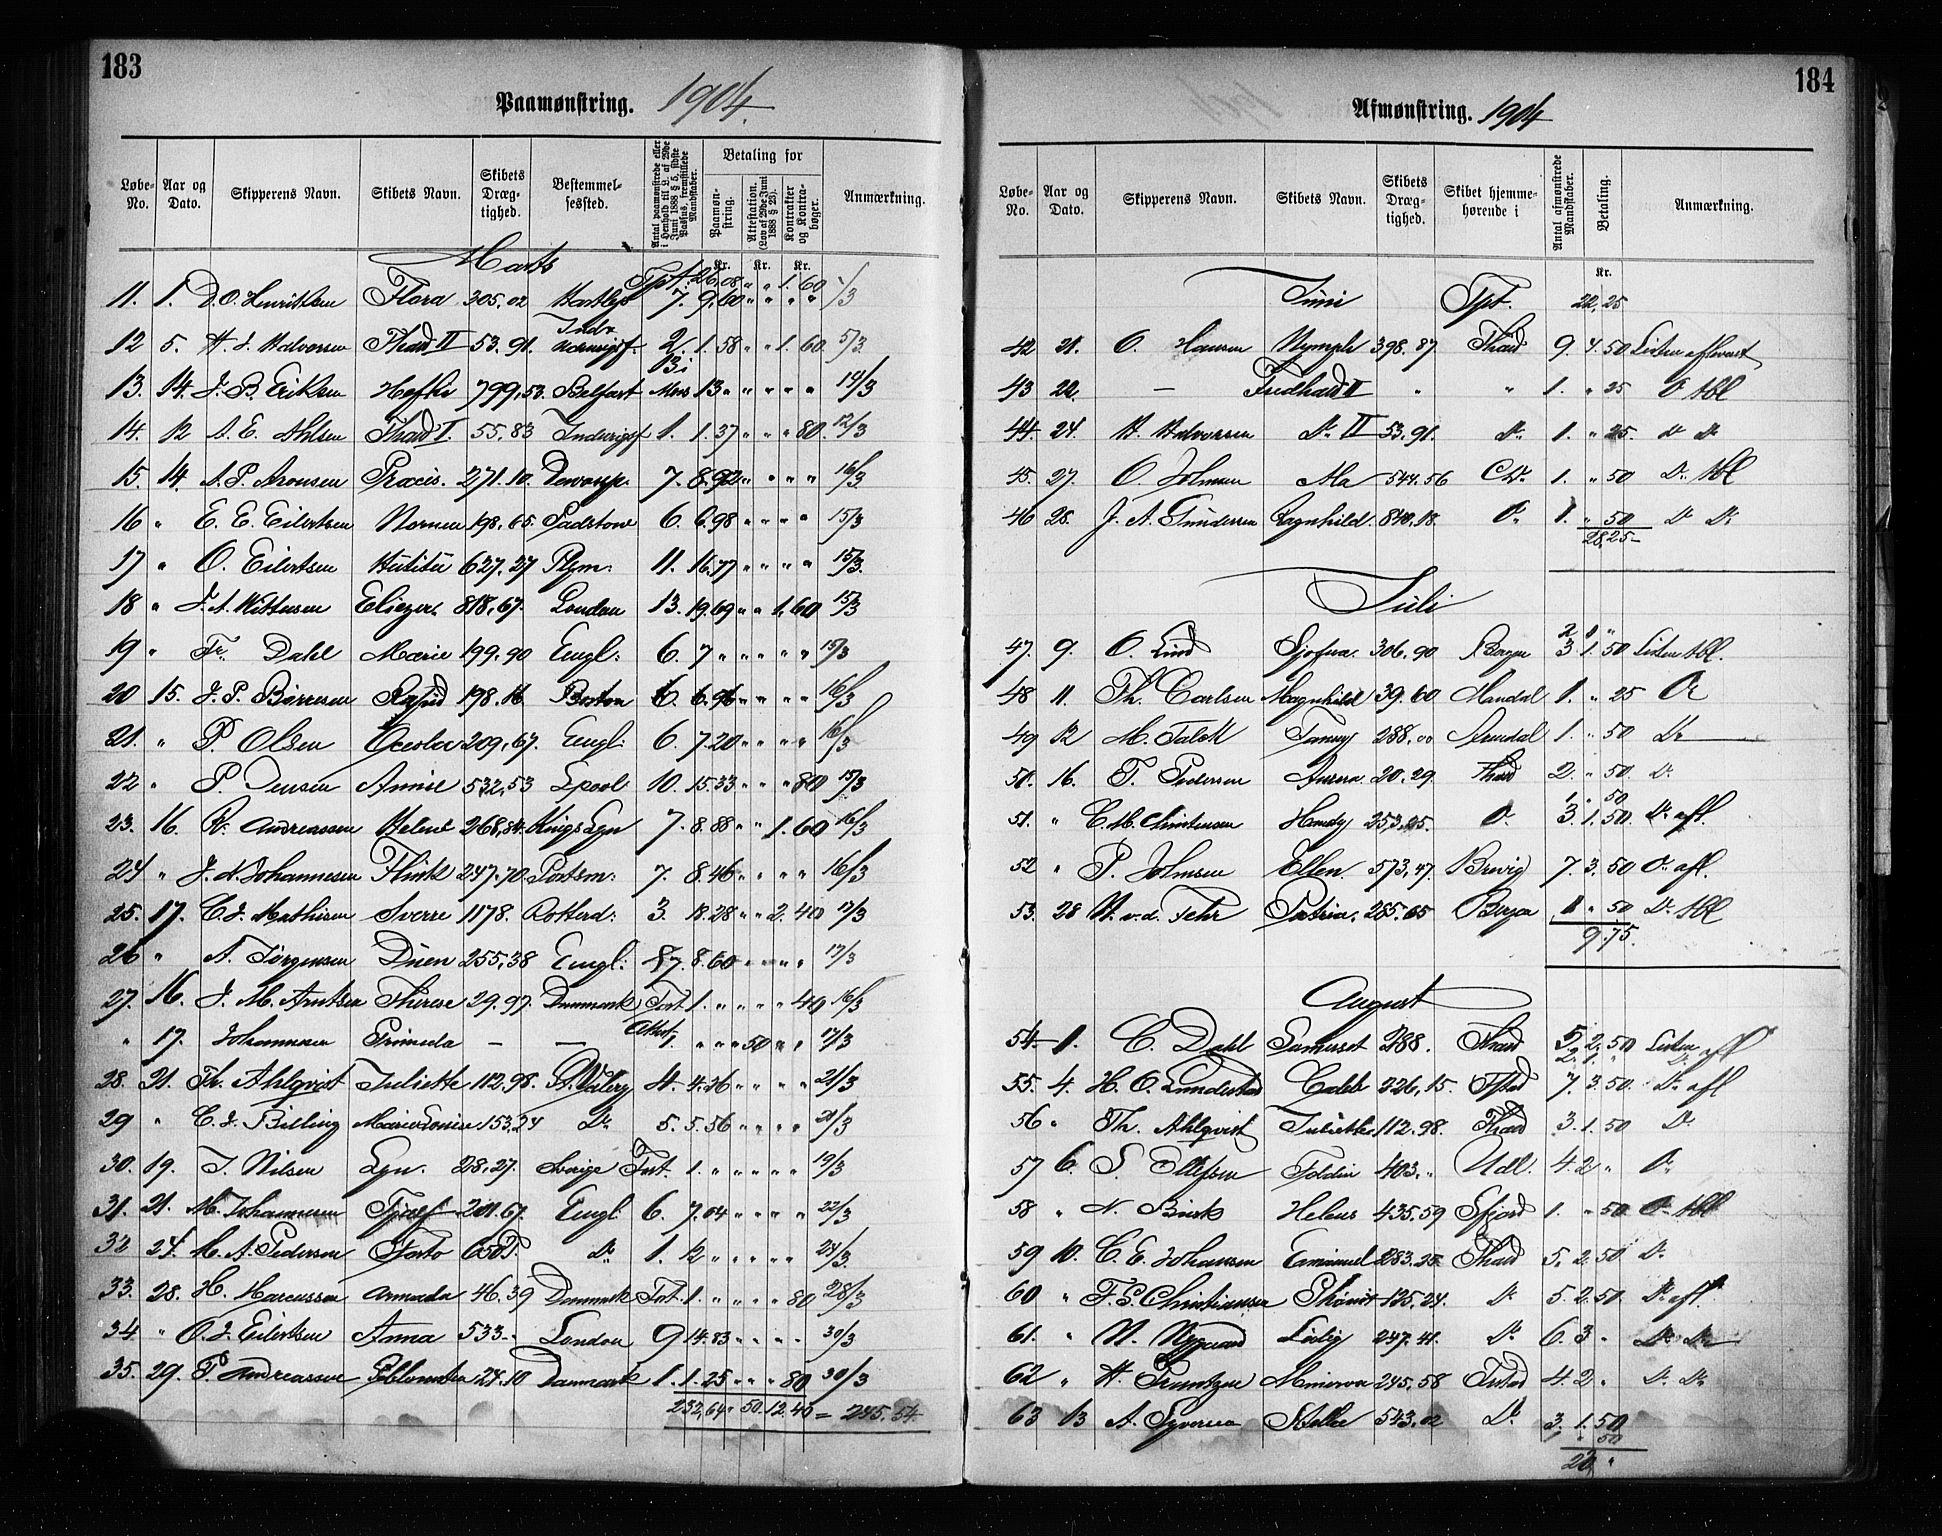 183
Paamønstring. 1904.
Løbe-No.
Aar og Dato.
Skipperens Navn.
Skibets Navn.
Skibets Dræg-tighed.
Bestemmel-sessted.
Antal paamønstrede eller i Henhold til L. af 29de Juni 1888 § 5, sidste Passus, fremstillede Mandstaber.
Betaling for
Paamøn-string.
Attestation. (Lov af 29de Juni 1888 § 23).
Kontrakter og Kontra-bøger.
Anmærkning.
Kr. Kr. Kr.
Marts Tpt. 26,08 " " 1.60
11. 1. D.O. Henriksen Flora 305.02 7. 9.60 " " " " /3
12 5. H. J. Halvorsen Thad II 53.91. Indr 2 1.58 " " 1.60 5/3
13. 14. J. B. Eriksen 799,53. Belfast 13 " " " " " 14/3
14. 12 A. E. Ahlsen Thad I. 55.83 Indenrigsf 1. 1.37 " " " 80. 12/3
15. 14. A. P. Aronsen Præcis. 271.10. 7. 8.92 " " " " 16/3
16 " E. E. Eilertsen Nornen 198.65. Padstow 6. 6.98 " " " " 15/3
17 " O. Eilertsen 627.27 Plym: 11. 16.77 " " " " 15/3.
18 " J. A. Wittusen Eliezer. 818,67. London 13. 19.69 " " 1.60 15/3
19 " Fr. Dahl Marie 199.90 Engl: 6. 7 " " " " " 15/3
20 15. J. P. Børresen 178.16 Boston 6. 6.96 " " " " 16/3
21. " P. Olsen 209,67. Engl: 6. 7.20 " " " " 16/3
22 " P. Jensen Annie 532,53 Lpool 10. 15.33 " " " 80 15/3
23. 16. Andreassen Helene 268,84. Kings Lyn 7. 8.88 " " 1.60 16/3
24 " J. N. Johannesen Flink 247.70. Portsm: 7. 8.46 " " " " 16/3
25. 17. C. J. Mathisen Sverre 1178. Rotterd: 3. 18.28 " " 2.40 17/3
26 " A. Jørgensen Duen 255,38 Engl: 7. 8.60 " " " " 17/3
27. 16. J. M. Arntsen Therese 29.97. Danmark Fort 1. " " " " 40 16/3
" 17. Johannesen Primula — — Attest 1. " " " 50 " " 17/3
28. 21. Th. Ahlqvist Juliette 112.98. 4. 4.36 " " " " 21/3
29 " C. J. Billing Marie Louise 153.24 Do 5. 5.56 " " " " 21/3
30. 19. T. Nilsen Lyn. 28,27. Sverige Fort. 1. " " " " " 19/3
31. 21. M. Johannesen Tjalf 201.67. Engl. 6. 7.04 " " " " 22/3
32 24. M. A. Pedersen Storto 650. Do 1. 12 " " " " " 24/3.
33. 28. H. Marcussen Armada 46.39 Danmark Fort. 1. " " " " 80 28/3
34 " O. J. Eilertsen Anna 533. London 9 14.83 " " " " 30/3
35. 29. P. Andreassen 24.10 Danmark 1. 1.25 " " " 80 30/3
232,64 " 50. 12.40 = 245.54
184
Afmønstring. 1904
Løbe-No.
Aar og Dato.
Skipperens Navn.
Skibets Navn.
Skibets Dræg-tighed.
Skibet hjemme-hørende i
Antal afmønstrede Mandstaber.
Betaling.
Anmærkning.
Kr.
Juni Tpt. 22,25
42 21. O. Hansen Nymph 398.87 Thad 9. 4.50 Listen afleveret
43 22. — Fredhard II " " 1. " 25 Do tbl
44. 24. H. Halvorsen Do II 53.91. Do 1. " 25. Do Do
45. 27. O. Johnsen Ala 544.56 Chr. 1. " 50 Do tbl
46 28. J. A. Gundersen Ragnhild. 840.18. Do 1. " 50 Do Do
28,25 –
Juli
2 1 "
47. 9. O. Lund Sjofna. 306.90 Bergen 3 1.50 Listen tbl.
48 11. Th. Carlsen Magnhild 39.60 Mandal 1. " 25 Do
49 12 M. Falck Fanny 288.00 Arendal 1. " 50 Do
50. 16. T. Pedersen Aurora. 20.29. Thad 2. " 50. Do
1. " 50
51. " C. M. Christensen Handy 253.25. Do 3. 1.50. Do afl.
52 " P. Johnsen Ellen. 573,47. Brevig 7. 3.50 Do afl.
53. 28 N. v. d. Fehr Patria, 285.65 Bergen 1 " 50 Do tbl
9.75.
August
54 1. C. Dahl Sumerset 288. Thad 5 2.50 Listen afl
2. 1. "
55. 4. H. O. Lundestad Caleb 226,15. 7. 3.50. Do afl
56 " Th. Ahlqvist Juliette 112.98. Thad 3. 1.50 Do
57 6. S. Ellefsen Foldin 403. " Udl. 4. 2 " Do
58 " N. Birk Helene 435.59 Sfjord 1. " 50 Do tbl
59 10. C. E. Johansen Emanuel 283.25 Thad 5. 2.50 Do
60 " F. G. Christiansen 135.24. Do 5. 2.50. Do afl.
61. " N. Nygaard 247.41. Do 6. 3 " Do Do
62 " H. Pruntzen Minerva 245,58 4. 2 " Do Do
63 13 A. Syversen Stella 543.02 Do 3. 1.50
1 " 50
28 "